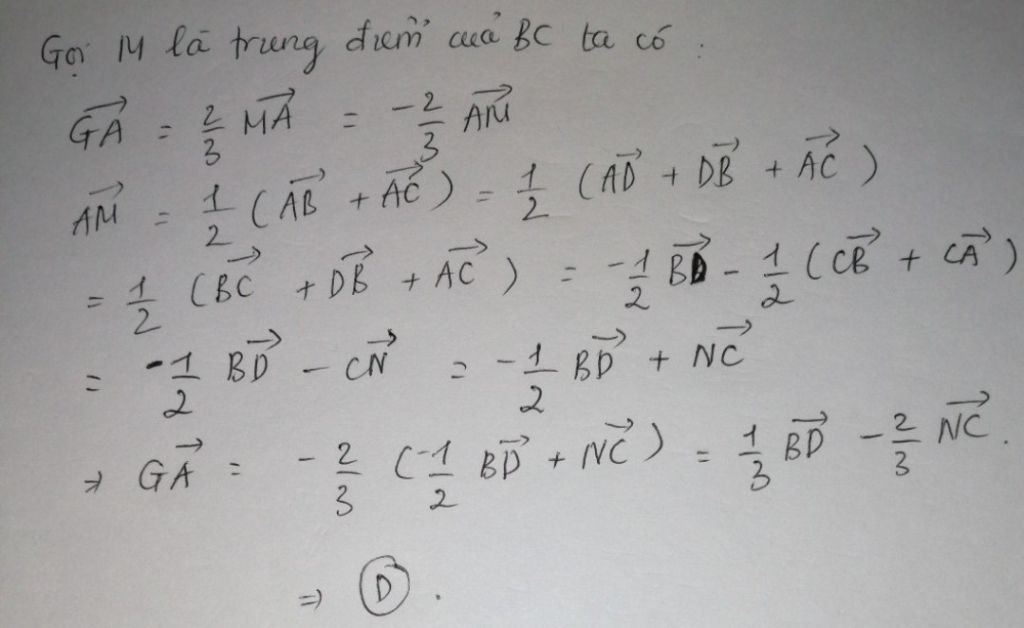 Gọi M là trung điểm của BC ta có :
$\overrightarrow{GA} = \frac{2}{3} \overrightarrow{MA} = -\frac{2}{3} \overrightarrow{AM}$
$\overrightarrow{AM} = \frac{1}{2} (\overrightarrow{AB} + \overrightarrow{AC}) = \frac{1}{2} (\overrightarrow{AD} + \overrightarrow{DB} + \overrightarrow{AC})$
$= \frac{1}{2} (\overrightarrow{BC} + \overrightarrow{DB} + \overrightarrow{AC}) = -\frac{1}{2} \overrightarrow{BD} - \frac{1}{2} (\overrightarrow{CB} + \overrightarrow{CA})$
$= -\frac{1}{2} \overrightarrow{BD} - \overrightarrow{CN} = -\frac{1}{2} \overrightarrow{BD} + \overrightarrow{NC}$
$\Rightarrow \overrightarrow{GA} = -\frac{2}{3} (-\frac{1}{2} \overrightarrow{BD} + \overrightarrow{NC}) = \frac{1}{3} \overrightarrow{BD} - \frac{2}{3} \overrightarrow{NC}.$
⇒ Ⓓ .